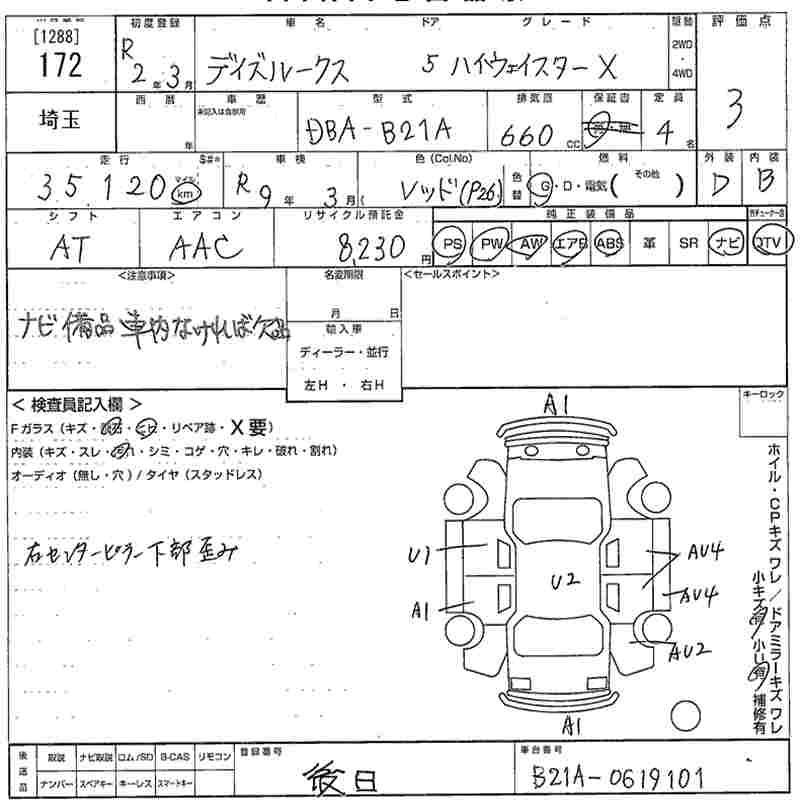 [1288]
172
埼玉
初度登録
R 2年3月
車名 ドア グレード
デイズルークス 5 ハイウェイスターX
駆動
2WD
・
4WD
評価点
3
西暦
年
車歴
未記入は自家用
型式
DBA-B21A
排気量
660 cc
保証書
定員
4名
走行
35,120
マイル
km
S#*
車検
R9年3月
色(Col.No)
レッド(P26)
色替
燃料
G・D・電気( その他 )
外装
D
内装
B
シフト
AT
エアコン
AAC
リサイクル預託金
8,230円
純正装備品
PS PW AW エアB ABS 革 SR ナビ
TV
<注意事項>
ナビ備品車内なければ欠品
名変期限
月 日
輸入車
ディーラー・並行
左H ・ 右H
<セールスポイント>
<検査員記入欄>
Fガラス(キズ・ ・ヒビ・リペア跡・X要)
内装(キズ・スレ・汚れ・シミ・コゲ・穴・キレ・破れ・割れ)
オーディオ(無し・穴)/タイヤ(スタッドレス)
右センターピラー下部歪み
キーロック
A1
U1
A1
U2
AU4
AU4
AU2
A1
ホイル・CPキズ ワレ/ドアミラーキズ ワレ
小キズ有 小U有 補修有
後送品
取説 ナビ取説 ロム/SD B-CAS リモコン
ナンバー スペアキー キーレス スマートキー
登録番号
後日
車台番号
B21A-0619101